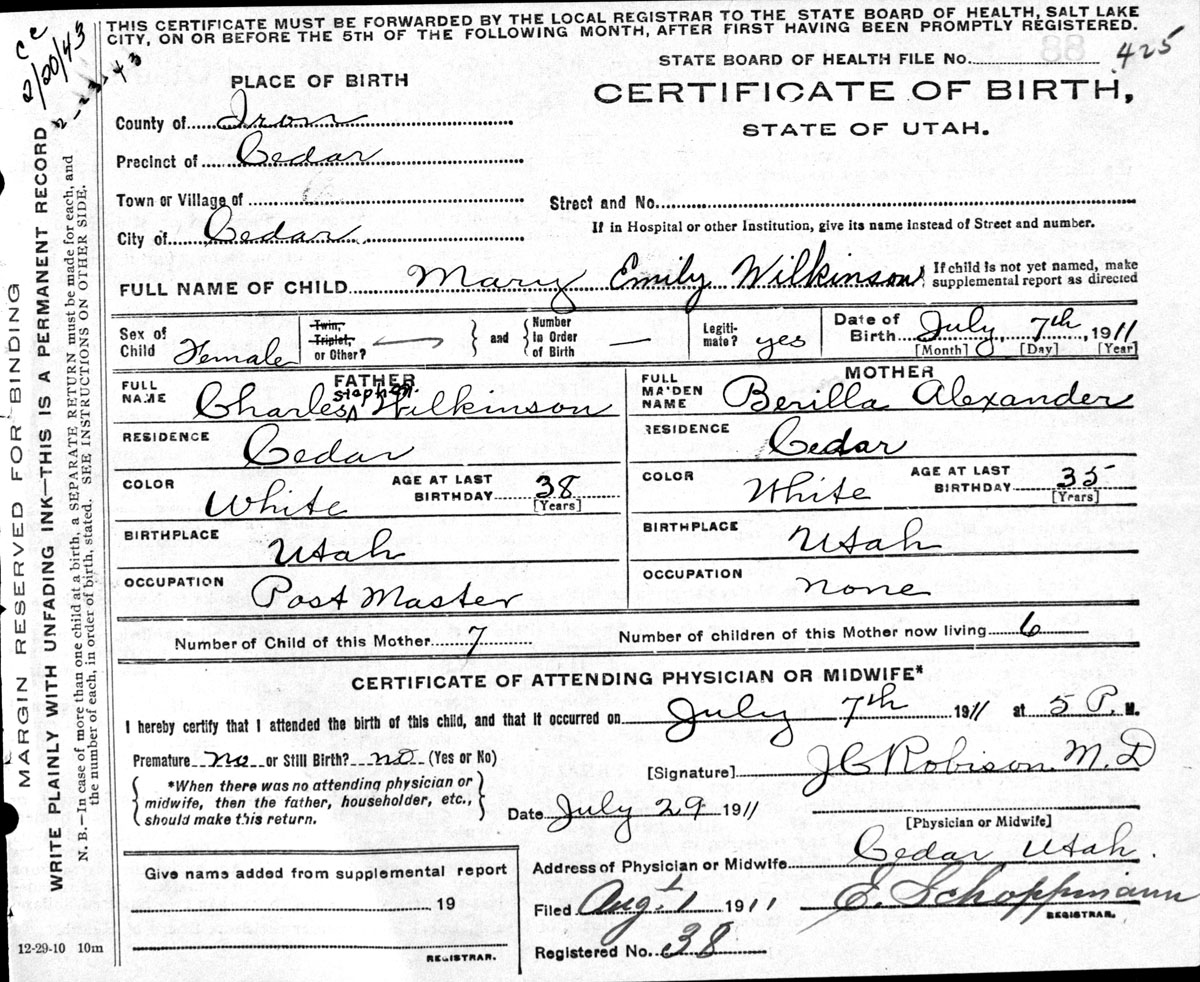 THIS CERTIFICATE MUST BE FORWARDED BY THE LOCAL REGISTRAR TO THE STATE BOARD OF HEALTH, SALT LAKE
CITY, ON OR BEFORE THE 5TH OF THE FOLLOWING MONTH, AFTER FIRST HAVING BEEN PROMPTLY REGISTERED.
CC
2/20/43
2-23-43
MARGIN RESERVED FOR BINDING
WRITE PLAINLY WITH UNFADING INK—THIS IS A PERMANENT RECORD
N. B.—In case of more than one child at a birth, a SEPARATE RETURN must be made for each, and
the number of each, in order of birth, stated. SEE INSTRUCTIONS ON OTHER SIDE.
STATE BOARD OF HEALTH FILE No. 88 425
PLACE OF BIRTH
CERTIFICATE OF BIRTH,
STATE OF UTAH.
County of Iron
Precinct of Cedar
Town or Village of
Street and No.
City of Cedar
If in Hospital or other Institution, give its name instead of Street and number.
FULL NAME OF CHILD Mary Emily Wilkinson { If child is not yet named, make
supplemental report as directed
Sex of
Child Female
Twin,
Triplet,
or Other?
} and { Number
in Order
of Birth —
Legiti-
mate? yes
Date of
Birth July 7th, 1911
[Month] [Day] [Year]
FATHER
FULL
NAME Charles Stephen Wilkinson
MOTHER
FULL
MAIDEN
NAME Berilla Alexander
RESIDENCE Cedar
RESIDENCE Cedar
COLOR White
AGE AT LAST
BIRTHDAY 38
[Years]
COLOR White
AGE AT LAST
BIRTHDAY 35
[Years]
BIRTHPLACE Utah
BIRTHPLACE Utah
OCCUPATION Post Master
OCCUPATION none
Number of Child of this Mother 7 Number of children of this Mother now living 6
CERTIFICATE OF ATTENDING PHYSICIAN OR MIDWIFE*
I hereby certify that I attended the birth of this child, and that it occurred on July 7th 1911 at 5 P. M.
Premature no or Still Birth? no (Yes or No)
[Signature] J C Robison M. D
{ *When there was no attending physician or
midwife, then the father, householder, etc.,
should make this return. }
Date July 29 1911
[Physician or Midwife]
Address of Physician or Midwife Cedar Utah.
Give name added from supplemental report
19
REGISTRAR.
Filed Aug. 1 1911 E. Schoppmann
REGISTRAR.
Registered No. 38
12-29-10 10m